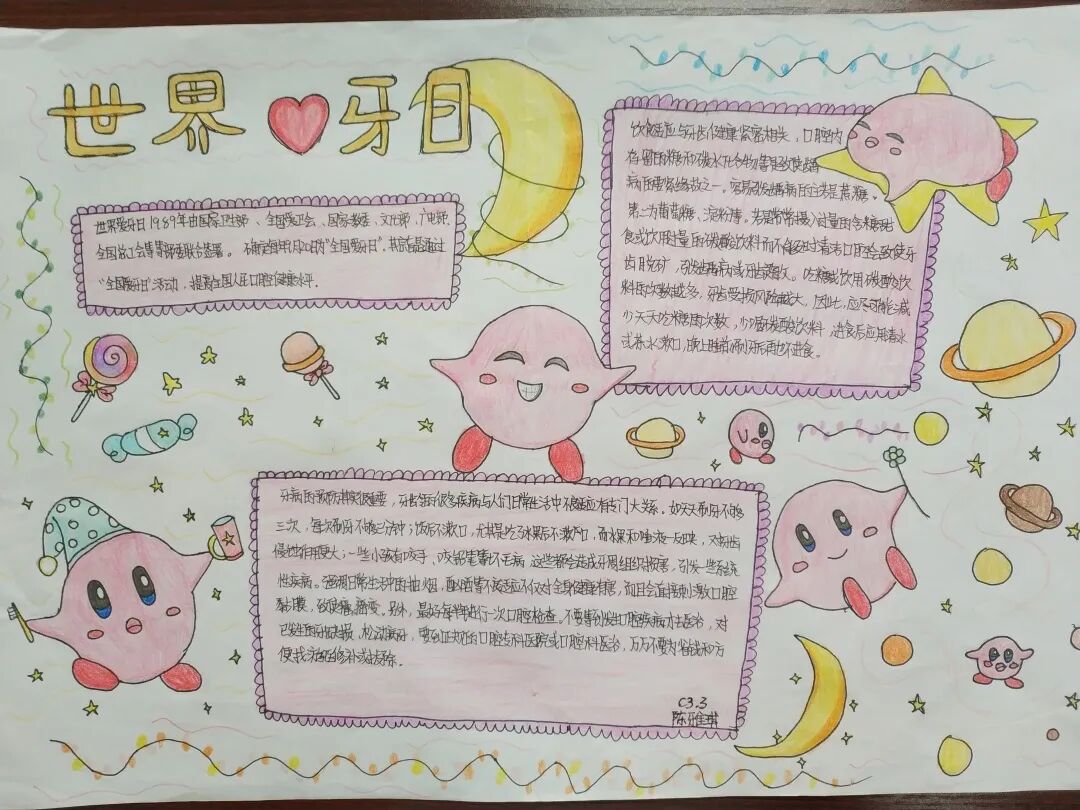 世界 牙日
世界爱牙日1989年由国家卫生部、全国爱卫会、国家教委、文化部、广电部、
全国总工会等部委联合签署。确定每年9月20日为"全国爱牙日"，其宗旨是通过
"全国爱牙日"活动，提高全国人民口腔健康水平。
饮食适应与牙齿健康紧密相关，口腔内
存留的糖和碳水化合物是导致龋
病的重要缘故之一。容易引发龋病的主要是蔗糖，
第二为葡萄糖、淀粉等。若是常常摄入过量的含糖甜
食或饮用过量的碳酸饮料而不能经过清洁口腔会致使牙
齿脱矿，引发龋病或牙齿敏感。吃糖或饮用碳酸饮
料的次数越多，牙齿受损风险越大。因此，应尽可能减
少天天吃糖的次数，少喝碳酸饮料，进食后应用清水
或茶水漱口，晚上睡前刷牙后再也不进食。
牙病的预防其实很重要，牙齿的很多疾病与人们日常生活中不良适应有专门大关系。如天天刷牙不够
三次，每次刷牙不够三分钟；饭后不漱口，尤其是吃了水果后不漱口，而水果和唾液一反映，对牙齿
侵蚀作用更大；一些小孩有咬手、咬铅笔等不定病，这些都会造成牙周组织损害，引发一些系统
性疾病。强调日常生活中的抽烟、酗酒等不良适应不仅对全身健康有害，而且会直接刺激口腔
黏膜，致使癌、癌变。另外，最好每半年进行一次口腔检查。不要等价发生口腔疾病才去医治，对
已发生的牙齿缺损、松动病牙，要到正规的口腔专科医院或口腔科医治，万万不要为省钱和方
便找游医修补或拔除。
C3.3
陈雅琪